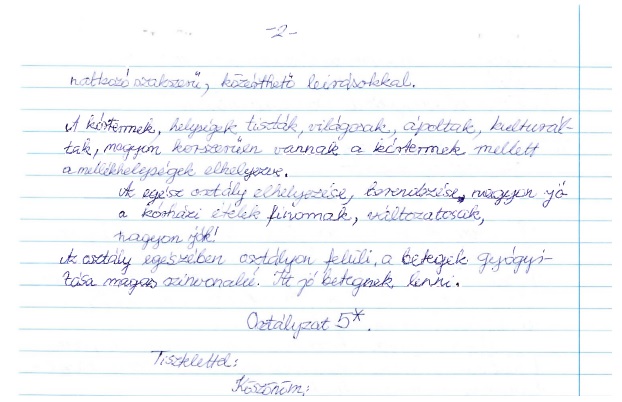 -2-
natkozó szakszerű, közérthető leirásokkal.
A kórtermek, helységek tiszták, világosak, ápoltak, kulturál-
tak, nagyon korszerűen vannak a kórtermek mellett
a mellékhelységek elhelyezve.
Az egész osztály elhelyezése, berendezése, nagyon jó
a kórházi ételek finomak, változatosak,
nagyon jók!
Az osztály egészében osztályon felüli, a betegek gyógyí-
tása magas szinvonalú. Itt jó betegnek lenni.
Osztályzat 5*.
Tisztelettel:
Köszönöm;